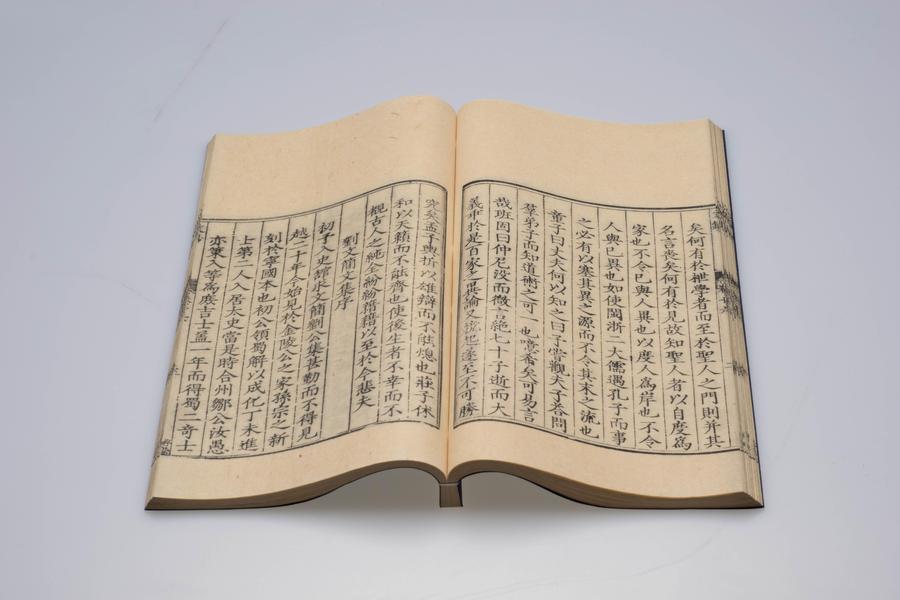 矣何有於褋學者而至於聖人之門則并其
名言喪矣何有於見故知聖人者以自度為
家也不令已與人異也以度人為岸也不令
人與已異也如使閩浙二大儒遇孔子而事
之必有以塞其異之源而不令其末之流也
童子曰丈夫何以知之曰予嘗觀夫子荅問
羣弟子而知道術之可一也噫斋矣可易言
哉班固曰仲尼没而微言絶七十子逝而大
義乖於是百家之異論又競起遂至不可勝
究矣孟子輿折以雄辯而不能熄也莊子休
和以天籟而不能齊也使後生者不幸而不
覩古人之純全紛紛籍籍以至於今悲夫
劉文簡文集序
初予入史館求文簡劉公集甚勤而不得見
越二十年今始見於金陵公之家孫宗之新
刻於寧國本也初公領蜀解以成化丁未進
上第二人入居太史當是時合州鄒公汝愚
亦策入等為庶吉士盖一年而得蜀二竒士